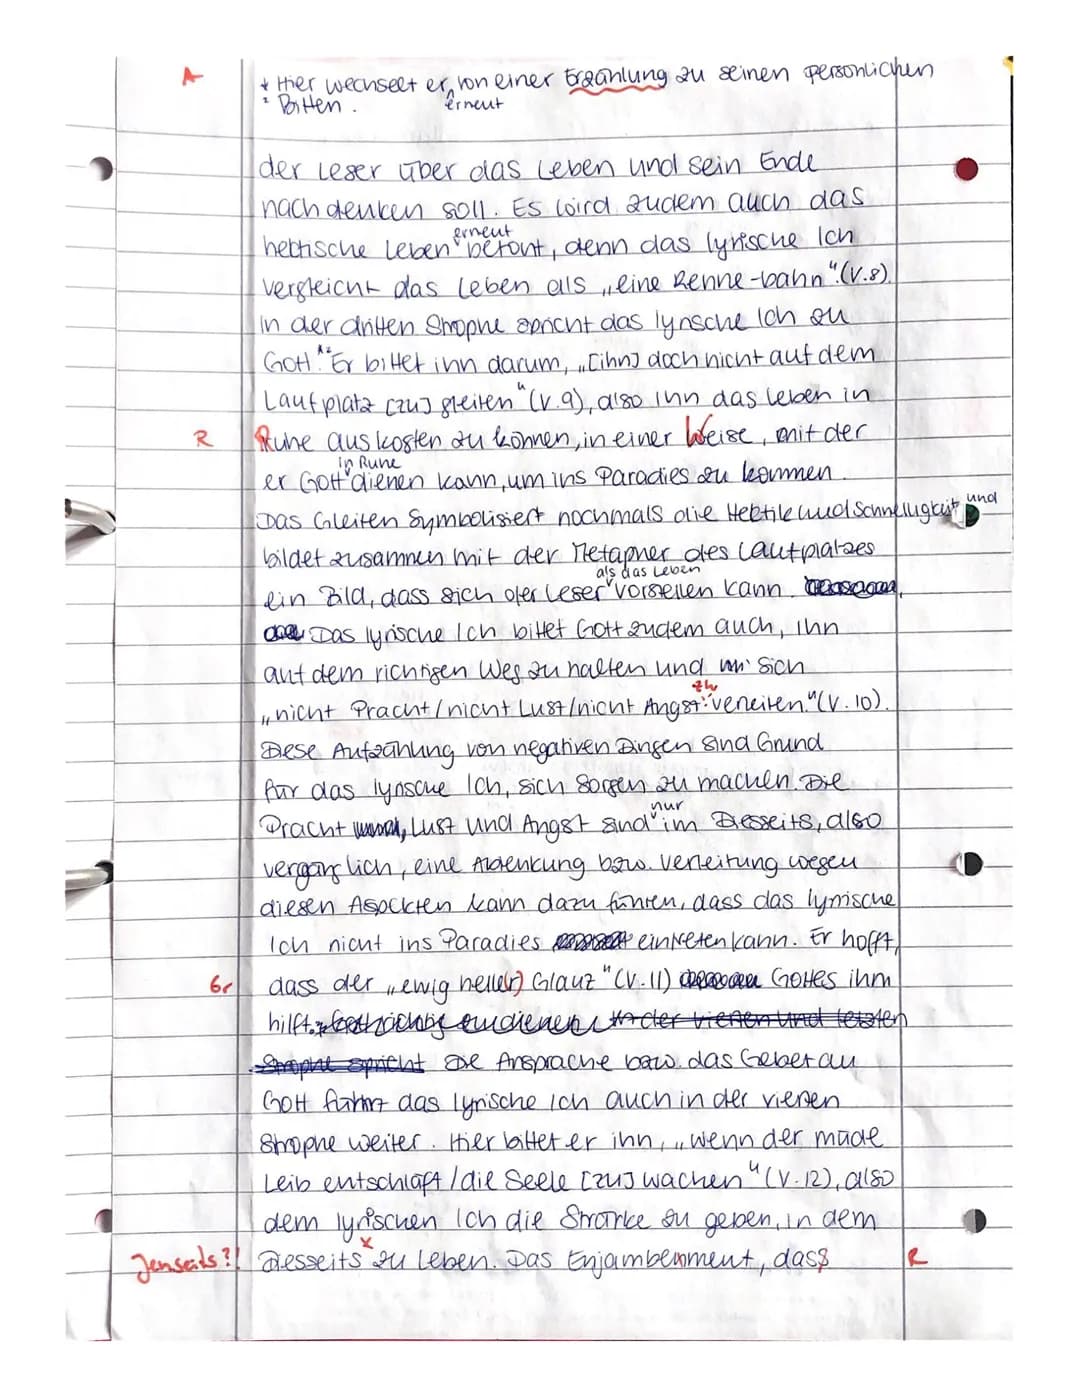 A
* Hier wechselt er von einer Erzählung zu seinen persönlichen
² Bitten. erneut
der Leser über das Leben und sein Ende
nachdenken soll. Es wird zudem auch das
erneut
hektische Leben betont, denn das lyrische Ich
vergleicht das Leben als „eine Renne-bahn“ (V.8).
In der dritten Strophe spricht das lyrische Ich zu
Gott.*² Er bittet ihn darum, „[ihn] doch nicht auf dem
Laufplatz [zu] gleiten“ (V.9), also ihn das Leben in
R Ruhe auskosten zu können, in einer Weise, mit der
in Ruhe
er Gott dienen kann, um ins Paradies zu kommen.
Das Gleiten Symbolisiert nochmals die Hektik und Schnelligkeit und
bildet zusammen mit der Metapher des Laufplatzes
als das Leben
ein Bild, dass sich der Leser vorstellen kann.
Das lyrische Ich bittet Gott zudem auch, ihn
auf dem richtigen Weg zu halten und sich
„nicht Pracht/nicht Lust/nicht Angst verleiten.“ (V.10).
Diese Aufzählung von negativen Dingen sind Grund
für das lyrische Ich, sich Sorgen zu machen. Die
nur
Pracht, Lust und Angst sind im Diesseits, also
vergänglich, eine Ablenkung bzw. Verleitung wegen
diesen Aspekten kann dazu führen, dass das lyrische
Ich nicht ins Paradies eintreten kann. Er hofft,
Gr dass der „ewig helle(r) Glanz“ (V.11) Gottes ihm
hilft. in der vierten und letzten
Strophe spricht Die Ansprache bzw. das Gebet an
Gott führt das lyrische Ich auch in der vierten
Strophe weiter. Hier bittet er ihn, „wenn der müde
Leib entschläft/die Seele [zu] wachen“ (V.12), also
dem lyrischen Ich die Stärke zu geben, in dem
Jenseits?! Diesseits x zu leben. Das Enjambemment, dass R